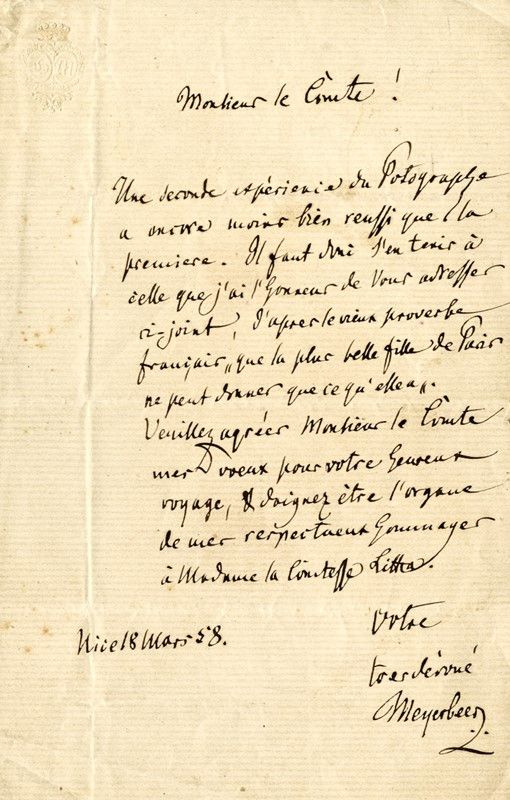 Monsieur le Comte !
Une seconde expérience du Potographe
a encore moins bien reussi que la
premiere. Il faut donc s'en tenir à
celle que j'ai l'honneur de Vous adresser
ci-joint, d'apres le vieux proverbe
français „que la plus belle fille de Paris
ne peut donner que ce qu'elle a".
Veuillez agréer Monsieur le Comte
mes voeux pour votre heureux
voyage, & daignez être l'organe
de mes respectueux hommages
à Madame la Comtesse Litta.
Votre
tres dévoué
Meyerbeer
Nice 18 Mars 58.